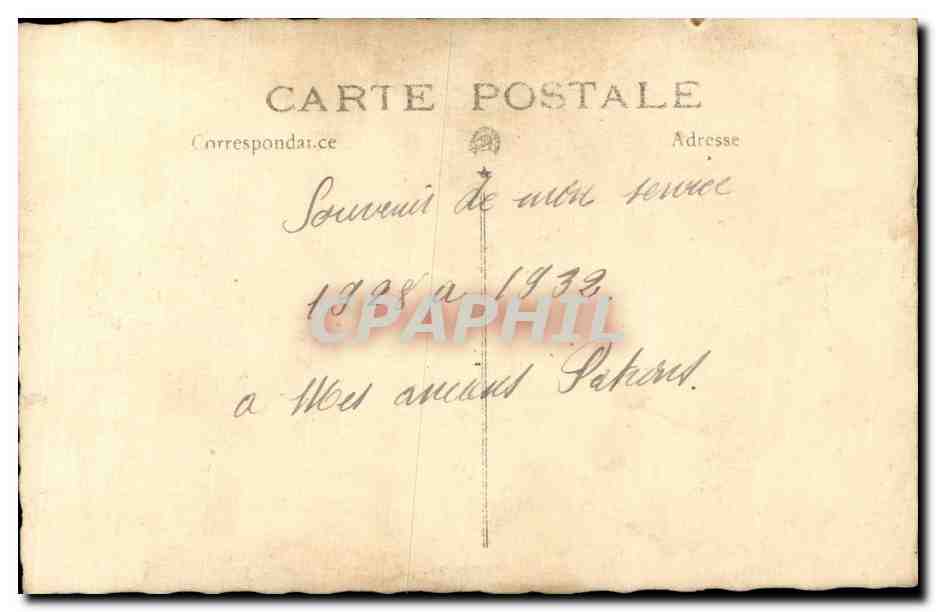 CARTE POSTALE
Correspondance
Adresse
Souvenir de mon service
1928 a 1932.
CPAPHIL
a Mes anciens Patrons.